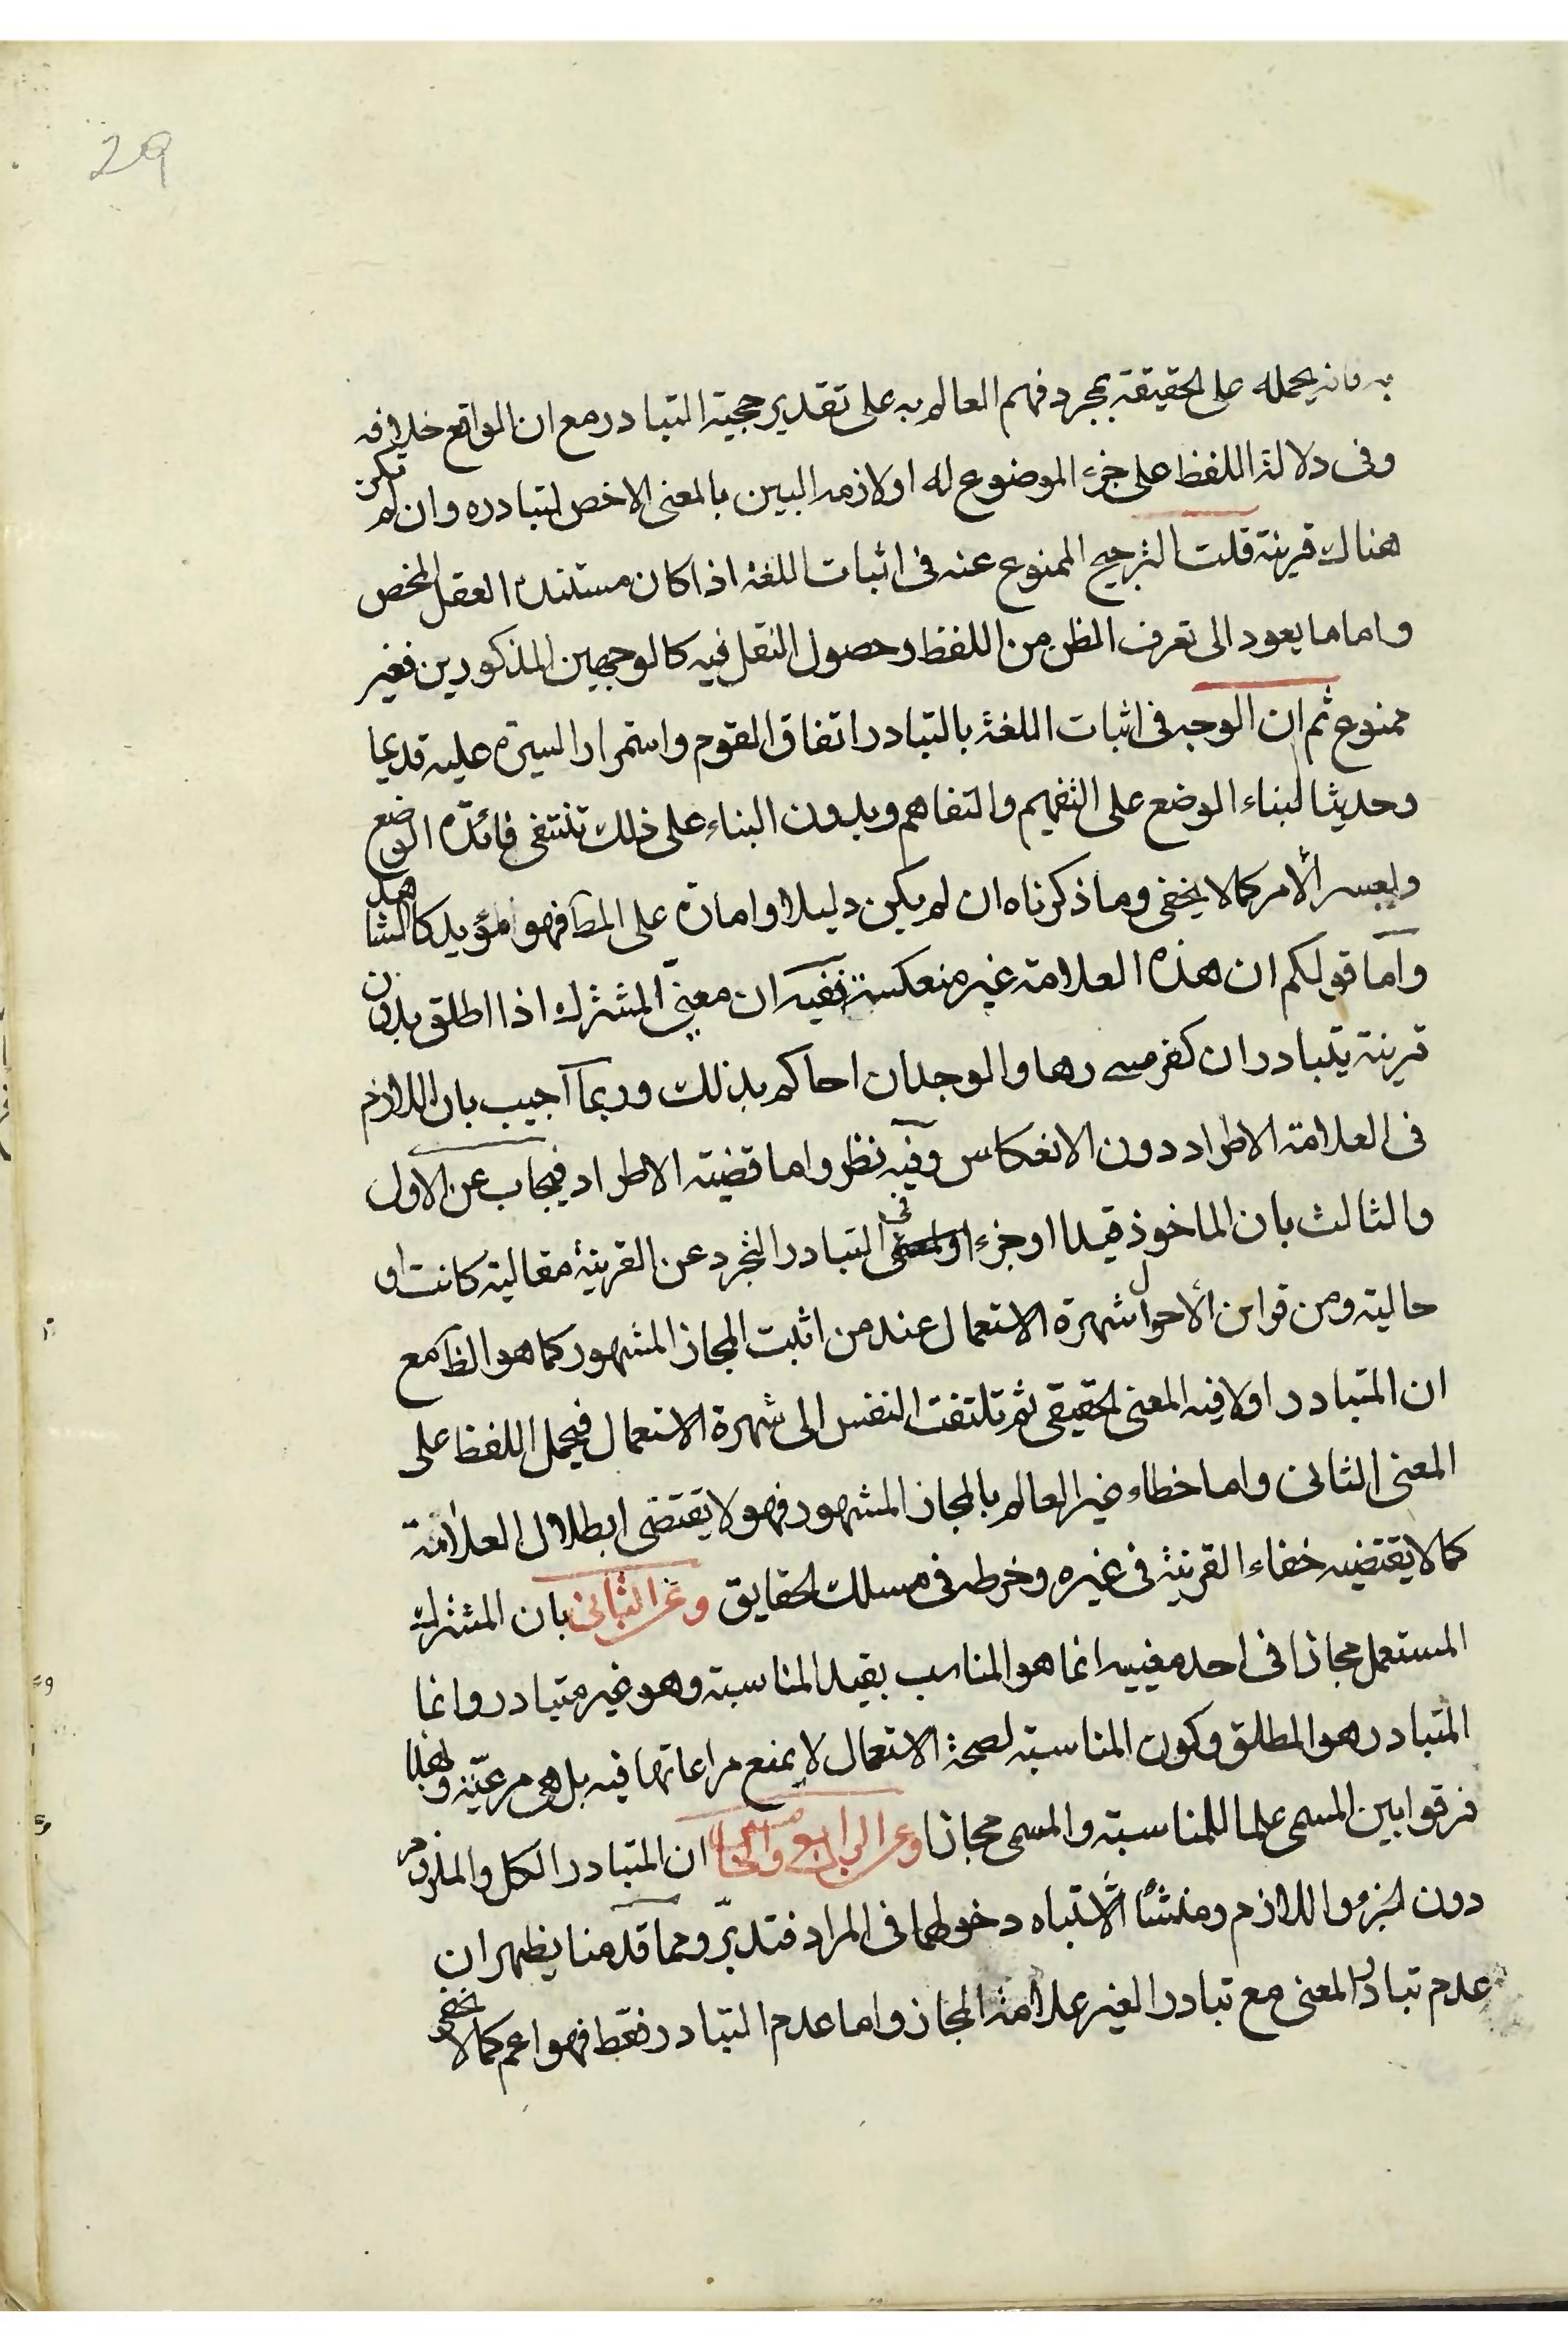 29
به فانه يحمله على الحقيقة بمجرد فهم العالم به على تقدير حجية التبادر مع ان الواقع خلافه
وفى دلالة اللفظ على جزء الموضوع له او لازمه البين بالمعنى الاخص لتبادره وان لم تكن
هناك قرينة قلت الترجيح الممنوع عنه فى اثبات اللغة اذا كان مستنده العقل المحض
واما ما يعود الى تعرف الظن من اللفظ وحصول النقل فيه كالوجهين المذكورين فغير
ممنوع ثم ان الوجه فى اثبات اللغة بالتبادر اتفاق القوم واستمرار السيرة عليه قديما
وحديثا لبناء الوضع على التفهيم والتفاهم وبدون البناء على ذلك تنتفى فائدة الوضع
ويعسر الأمر كما لا يخفى وما ذكرناه ان لم يكن دليلا او امارة على المط فهو مؤيد كالشاهد
وأما قولكم ان هذه العلامة غير منعكسة ففيه ان معنيى المشترك اذا اطلق بدون
قرينة يتبادران كفرسى رهان والوجدان احاكم بذلك وربما اجيب بان اللازم
فى العلامة الاطراد دون الانعكاس وفيه نظر واما قضية الاطراد فيجاب عن الاول
والثالث بان الماخوذ قيدا او جزء فى التبادر التجرد عن القرينة مقالية كانت او
حالية ومن قراين الأحوال شهرة الاستعمال عند من اثبت المجاز المشهور كما هو الظ مع
ان المتبادر اولا فيه المعنى الحقيقى ثم تلتفت النفس الى شهرة الاستعمال فيحمل اللفظ على
المعنى الثانى واما خطاء غير العالم بالمجاز المشهور فهو لا يقتضى ابطلال العلامة
كما لا يقتضيه خفاء القرينة فى غيره وخرطه فى مسلك الحقايق وعن الثانى بان المشترك
المستعمل مجازا فى احد معنييه انما هو المناسب بقيد المناسبة وهو غير متبادر وانما
المتبادر هو المطلق وكون المناسبة لصحة الاستعمال لا يمنع مراعاتها فيه بل هى مرعيّة ولهذا
فرقوا بين المسمى علما للمناسبة والمسمى مجازا وعن الرابع والخامس ان المتبادر الكل والملزوم
دون الجزء واللازم ومنشأ الاشتباه دخولهما فى المراد فتدبّر ومما قدمنا يظهر ان
عدم تبادر المعنى مع تبادر الغير علامة المجاز واما عدم التبادر فقط فهو اعم كما لا يخفى